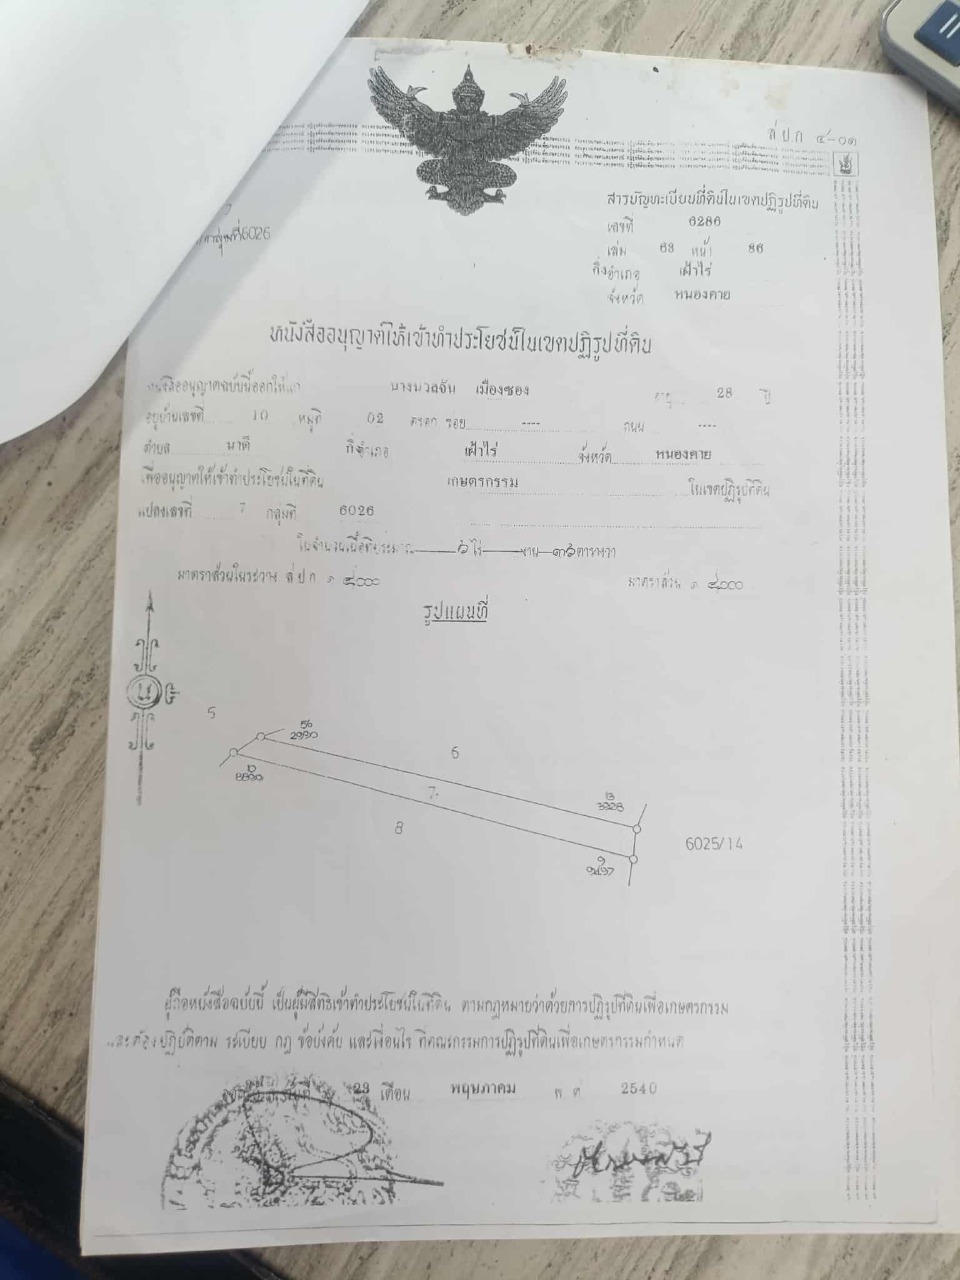 ส.ป.ก. ๔-๐๑
สารบัญทะเบียนที่ดินในเขตปฏิรูปที่ดิน
เลขที่ 6286
6026
เล่ม 63 หน้า 86
กิ่งอำเภอ เฝ้าไร่
จังหวัด หนองคาย
หนังสืออนุญาตให้เข้าทำประโยชน์ในเขตปฏิรูปที่ดิน
หนังสืออนุญาตฉบับนี้ออกให้แก่ นางนวลจัน เมืองซอง อายุ 28 ปี
อยู่บ้านเลขที่ 10 หมู่ที่ 02 ตรอก ซอย ---- ถนน ----
ตำบล นาดี กิ่งอำเภอ เฝ้าไร่ จังหวัด หนองคาย
เพื่ออนุญาตให้เข้าทำประโยชน์ในที่ดิน เกษตรกรรม ในเขตปฏิรูปที่ดิน
แปลงเลขที่ 7 กลุ่มที่ 6026
ในจำนวนเนื้อที่ประมาณ ๖ ไร่ งาน ๓๖ ตารางวา
มาตราส่วนในระวาง ส.ป.ก. ๑ ๔๐๐๐ มาตราส่วน ๑ ๔๐๐๐
รูปแผนที่
น
5
56
2990
6
10
8890
7
13
3928
8
6025/14
9
9497
ผู้ถือหนังสือฉบับนี้ เป็นผู้มีสิทธิเข้าทำประโยชน์ในที่ดิน ตามกฎหมายว่าด้วยการปฏิรูปที่ดินเพื่อเกษตรกรรม
และต้องปฏิบัติตาม ระเบียบ กฎ ข้อบังคับ และเงื่อนไข ที่คณะกรรมการปฏิรูปที่ดินเพื่อเกษตรกรรมกำหนด
23 เดือน พฤษภาคม พ ศ 2540